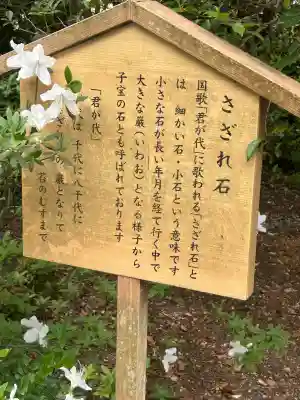 さざれ石
国歌「君が代」に歌われる「さざれ石」と
は 細かい石・小石という意味です
小さな石が長い年月を経て行く中で
大きな巌(いわお)となる様子から
子宝の石とも呼ばれております
「君が代」
は 千代に八千代に
の 巌となりて
石のむすまで